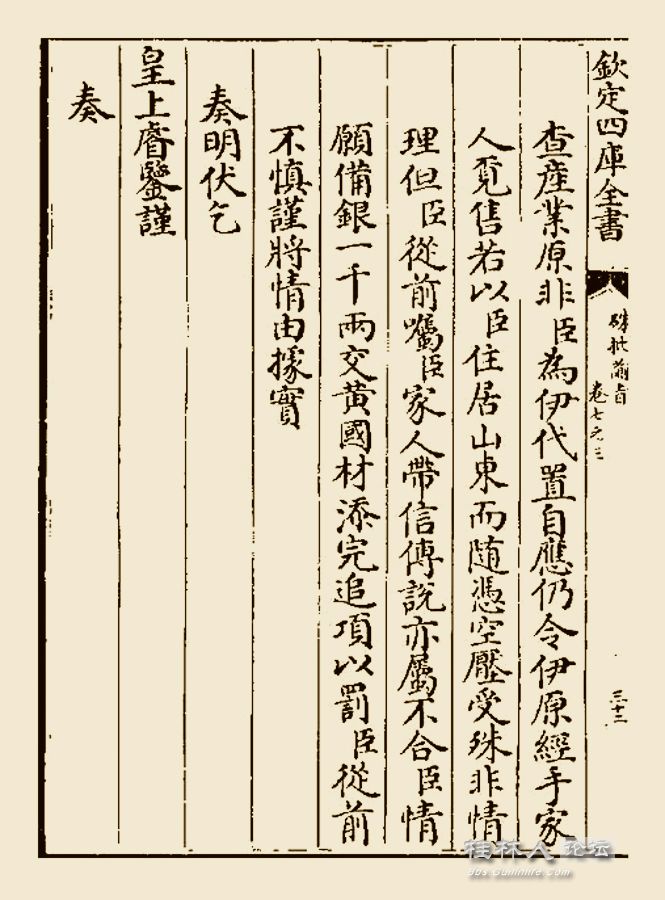 欽定四庫全書
硃批諭旨
卷七之三
三十三
查產業原非臣為伊代置自應仍令伊原經手家
人覓售若以臣住居山東而隨憑空壓受殊非情
理但臣從前囑臣家人帶信傳說亦屬不合臣情
願備銀一千兩交黃國材添完追項以罰臣從前
不慎謹將情由據實
奏明伏乞
皇上睿鑒謹
奏
桂林人论坛
bbs.Guilinlife.com